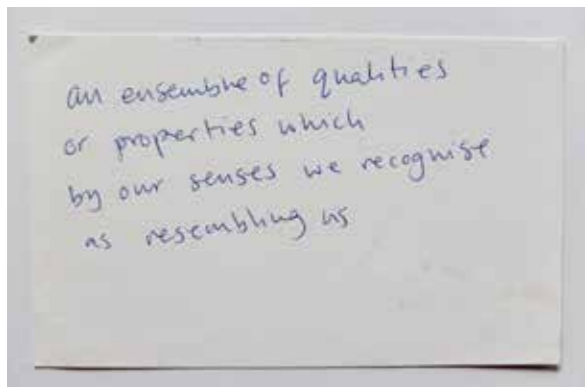 an ensemble of qualities
or properties which
by our senses we recognise
as resembling us